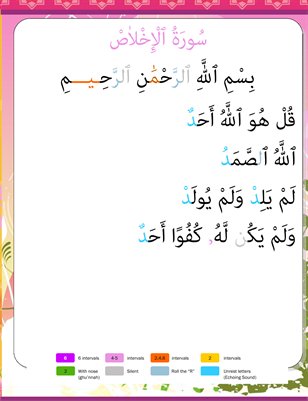 سُورَةُ ٱلْإِخْلَاصْ
بِسْمِ ٱللَّهِ ٱلرَّحْمَٰنِ ٱلرَّحِيمِ
قُلْ هُوَ ٱللَّهُ أَحَدٌ
ٱللَّهُ ٱلصَّمَدُ
لَمْ يَلِدْ وَلَمْ يُولَدْ
وَلَمْ يَكُن لَّهُۥ كُفُوًا أَحَدٌ
6 6 intervals 4-5 intervals 3,4,6 intervals 2 intervals
2 With nose (ghu'nnah) Silent Roll the "R" Unrest letters (Echoing Sound)